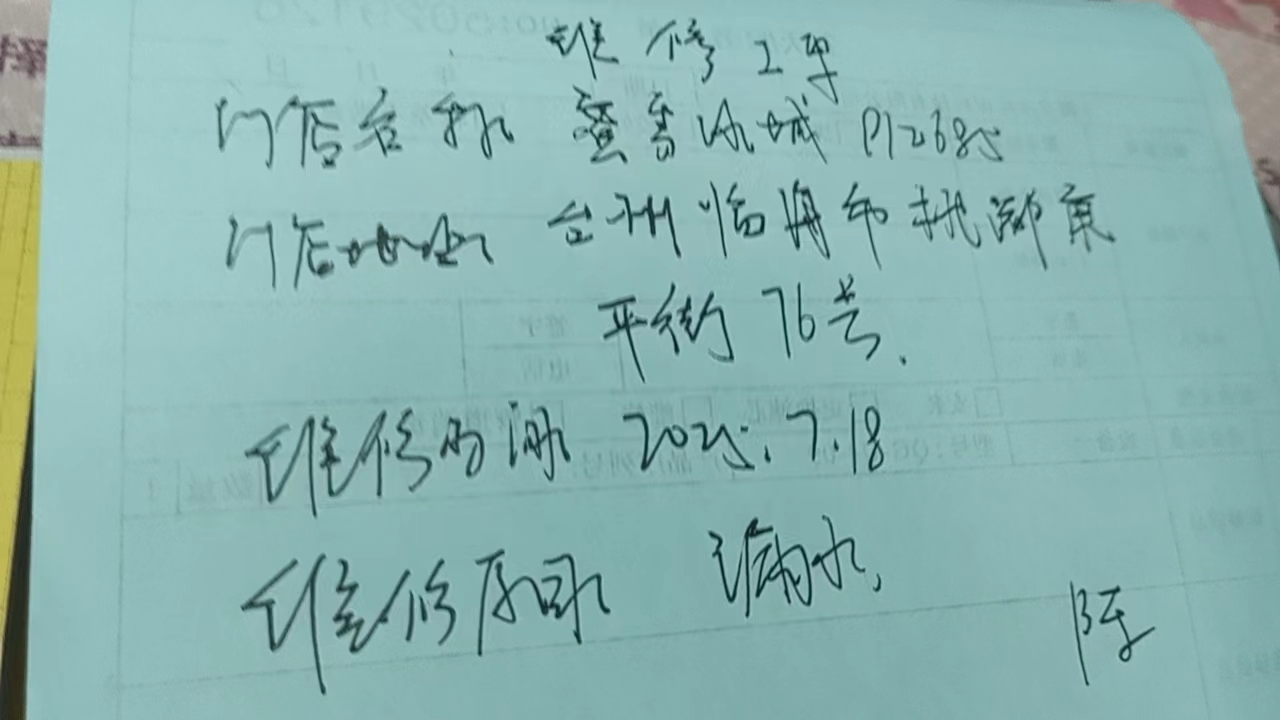 维修工单
门店名称 蜜雪冰城 P12685
门店地址 台州临海市桃渚东
平街 76号.
维修时间 2025.7.18
维修原因 漏水.
陈